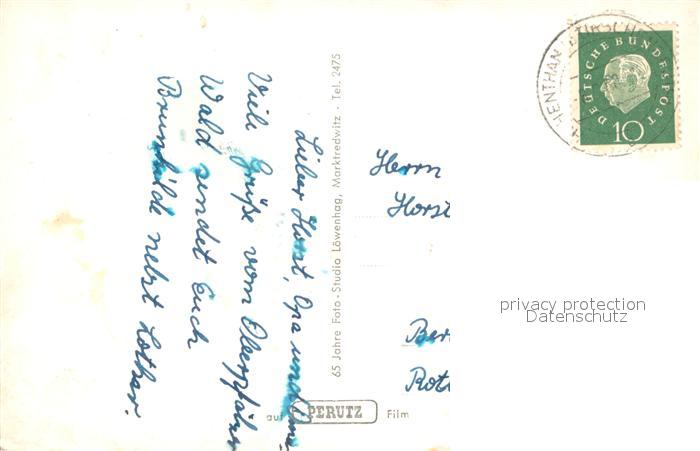 Lieber Horst, Opa und Oma
Viele Grüße vom Oberpfälzer
Wald sendet Euch
Brunhilde nebst Lothar.
65 Jahre Foto-Studio Löwenhag, Marktredwitz · Tel. 2475
auf PERUTZ Film
Herrn
Horst
Ber
Rot
DEUTSCHE BUNDESPOST
10
privacy protection
Datenschutz